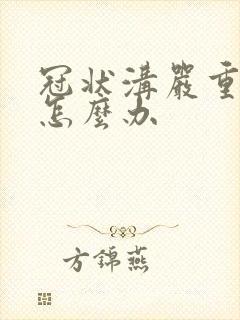 冠状溝嚴重
怎麼办
方錦燕